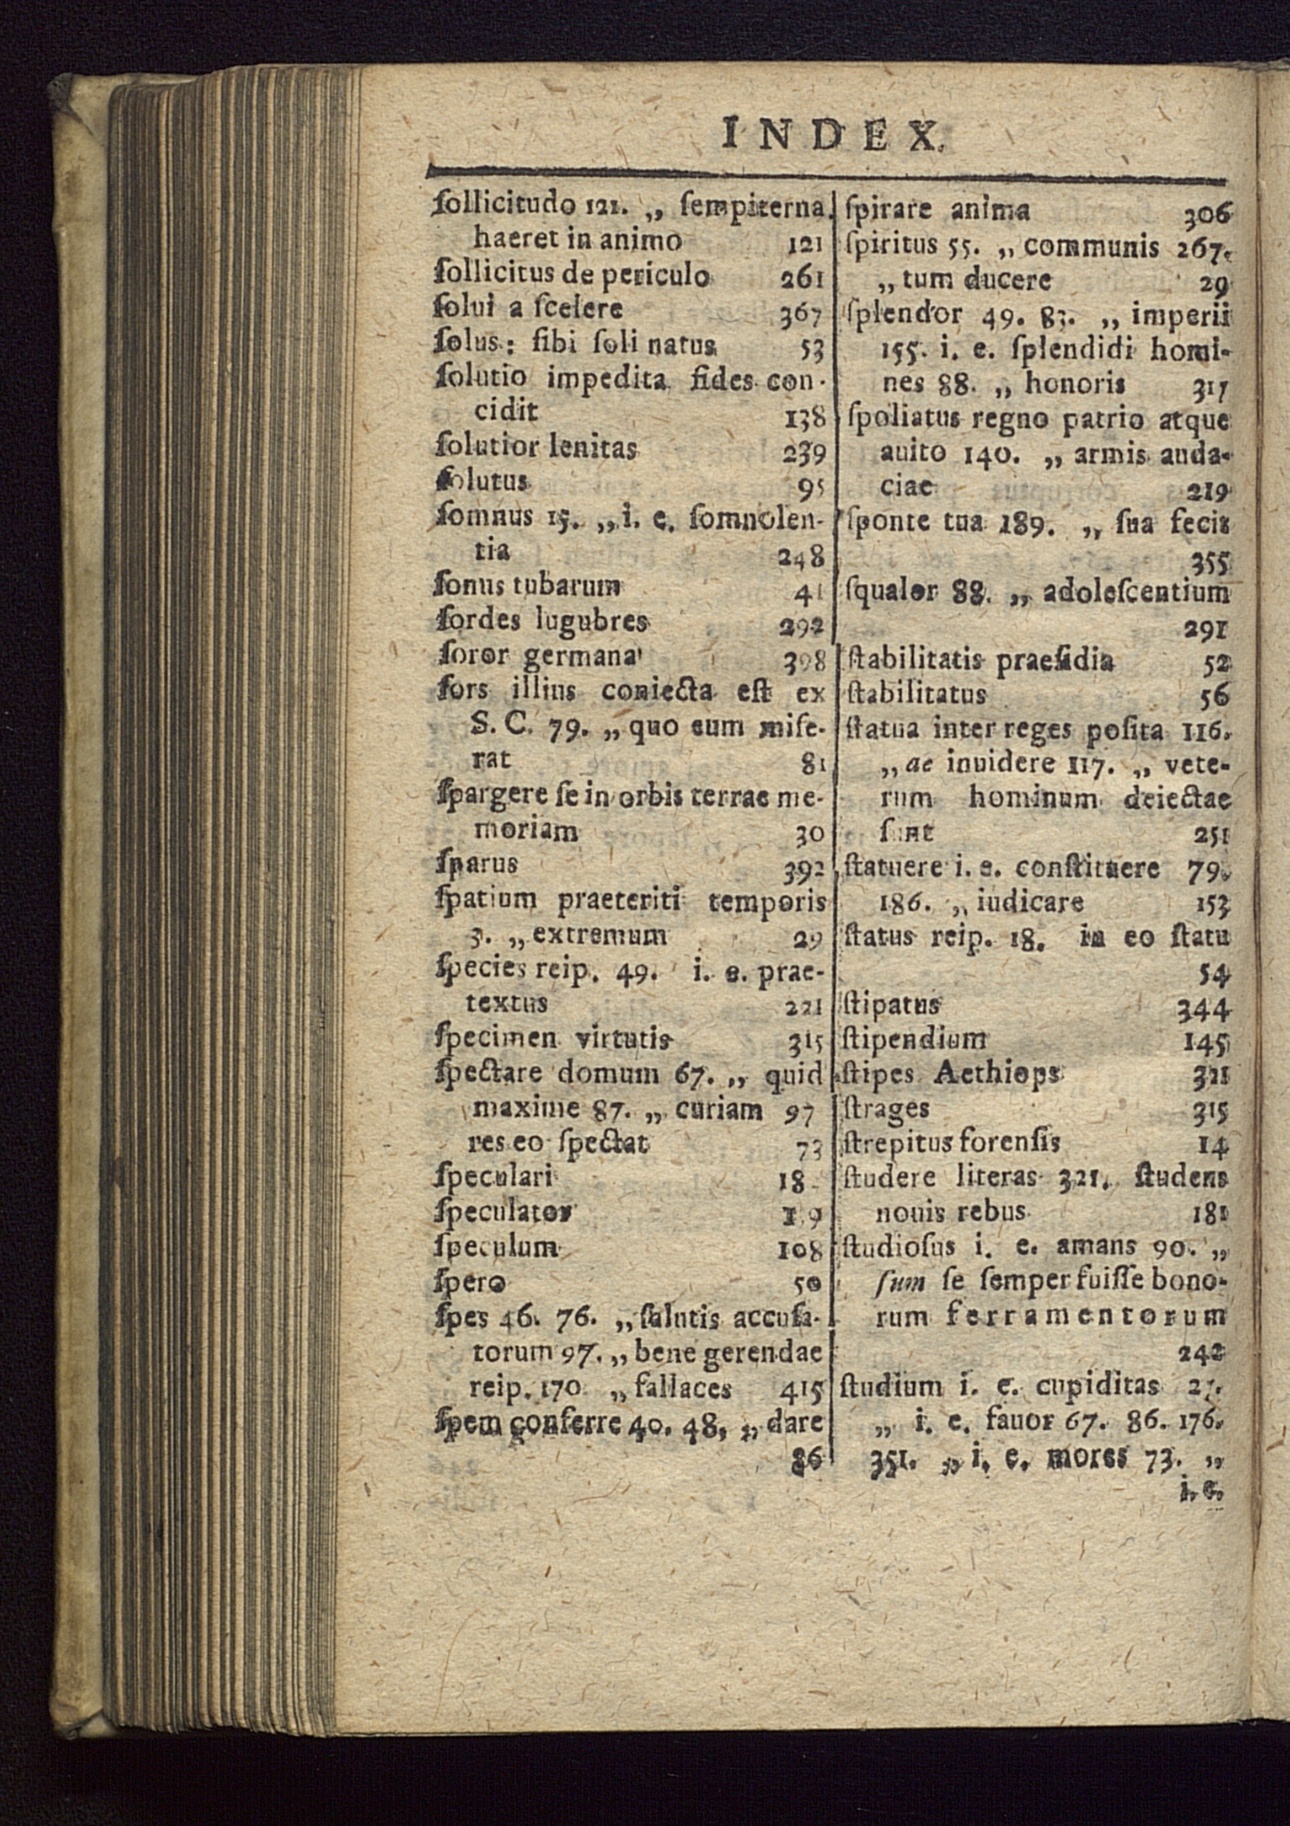 INDEX.
ſollicitudo 121. „ ſempiterna
haeret in animo 121
ſollicitus de periculo 261
ſolui a ſcelere 367
ſolus: ſibi ſoli natus 53
ſolutio impedita fides con-
cidit 138
ſolutior lenitas 239
ſolutus 95
ſomnus 15. „ i. e. ſomnolen-
tia 248
ſonus tubarum 41
ſordes lugubres 292
ſoror germana 398
ſors illius coniecta eſt ex
S. C. 79. „ quo eum miſe-
rat 81
ſpargere ſe in orbis terrae me-
moriam 30
ſparus 392
ſpatium praeteriti temporis
3. „ extremum 29
ſpecies reip. 49. i. e. prae-
textus 221
ſpecimen virtutis 315
ſpectare domum 67. „ quid
maxime 87. „ curiam 97
res eo ſpectat 73
ſpeculari 18
ſpeculator
ſpeculum 108
ſpero 50
ſpes 46. 76. „ ſalutis accuſa-
torum 97. „ bene gerendae
reip. 170 „ fallaces 415
ſpem conferre 40. 48, „ dare
86
ſpirare anima 306
ſpiritus 55. „ communis 267.
„ tum ducere 29
ſplendor 49. 83. „ imperii
155. i. e. ſplendidi homi-
nes 88. „ honoris 317
ſpoliatus regno patrio atque
auito 140. „ armis auda-
ciae 219
ſponte tua 189. „ ſua fecit
355
ſqualor 88. „ adoleſcentium
291
ſtabilitatis praeſidia 52
ſtabilitatus 56
ſtatua inter reges poſita 116.
„ ae inuidere 117. „ vete-
rum hominum deiectae
ſunt 251
ſtatuere i. e. conſtituere 79.
186. „ iudicare 153
ſtatus reip. 18. in eo ſtatu
54
ſtipatus 344
ſtipendium 145
ſtipes Aethiops 321
ſtrages 315
ſtrepitus forenſis 14
ſtudere literas 321. ſtudens
nouis rebus 181
ſtudioſus i. e. amans 90. „
ſum ſe ſemper fuiſſe bono-
rum ferramentorum
242
ſtudium i. e. cupiditas 27.
„ i. e. fauor 67. 86. 176.
351. „ i. e. mores 73. „
i. e.